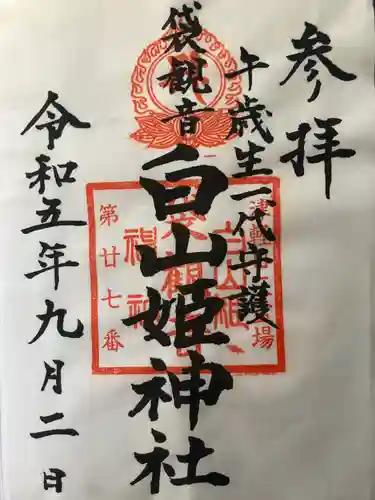 参拝
午歳生一代守護
袋観音
白山姫神社
令和五年九月二日
第廿七番